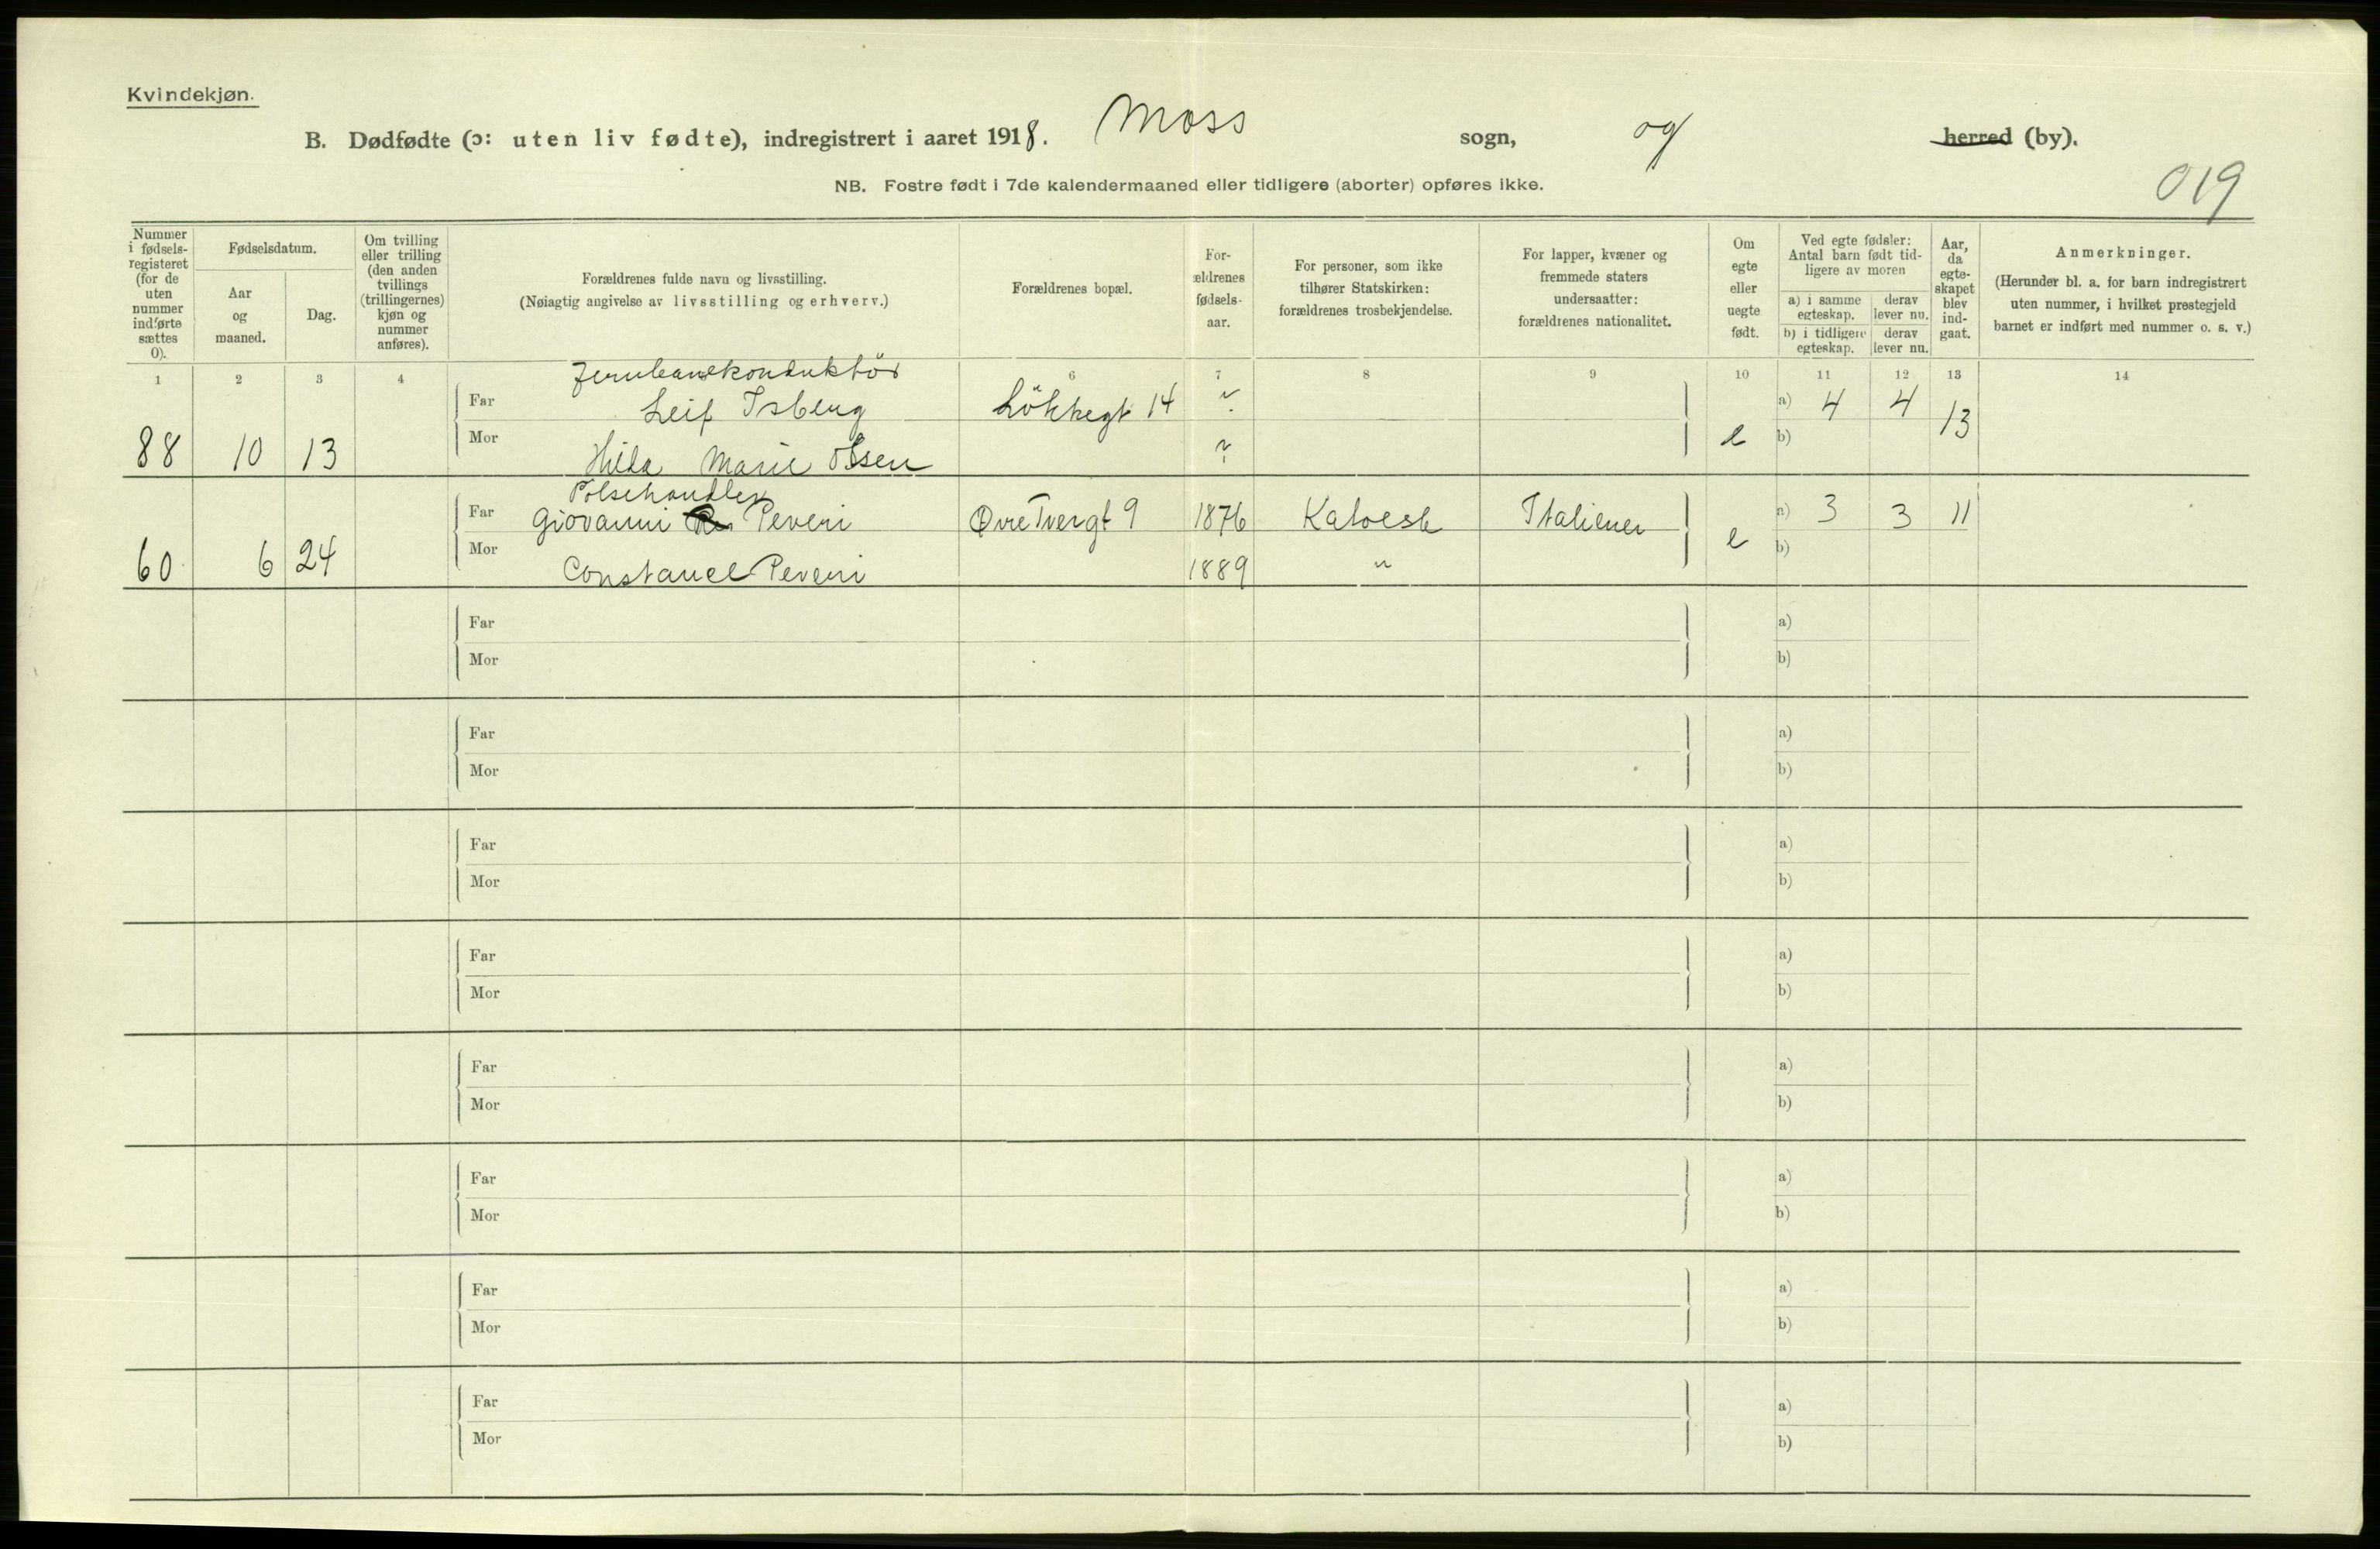 Kvindekjøn.
B. Dødfødte (ɔ: uten liv fødte), indregistrert i aaret 1918. Moss sogn, og herred (by).
019
NB. Fostre født i 7de kalendermaaned eller tidligere (aborter) opføres ikke.
Nummer i fødsels-registeret (for de uten nummer indførte sættes 0).
Fødselsdatum.
Aar og maaned.
Dag.
Om tvilling eller trilling (den anden tvillings (trillingernes) kjøn og nummer anføres).
Forældrenes fulde navn og livsstilling.
(Nøiagtig angivelse av livsstilling og erhverv.)
Forældrenes bopæl.
For-ældrenes fødsels-aar.
For personer, som ikke tilhører Statskirken: forældrenes trosbekjendelse.
For lapper, kvæner og fremmede staters undersaatter: forældrenes nationalitet.
Om egte eller uegte født.
Ved egte fødsler: Antal barn født tid-ligere av moren
a) i samme egteskap.
derav lever nu.
b) i tidligere egteskap.
derav lever nu.
Aar, da egte-skapet blev ind-gaat.
Anmerkninger.
(Herunder bl. a. for barn indregistrert uten nummer, i hvilket prestegjeld barnet er indført med nummer o. s. v.)
1 2 3 4 6 7 8 9 10 11 12 13 14
Jernbanekonduktör
Far Leif Isberg Lökkegt 14 ? a) 4 4 13
88 10 13 Mor Hilda Marie Olsen ? e b)
Pölsehandler
Far Giovanni Peveri Øvre Tvergt 9 1876 Katolsk Italiener a) 3 3 11
60 6 24 Mor Constance Peveri 1889 " e b)
Far a)
Mor b)
Far a)
Mor b)
Far a)
Mor b)
Far a)
Mor b)
Far a)
Mor b)
Far a)
Mor b)
Far a)
Mor b)
Far a)
Mor b)